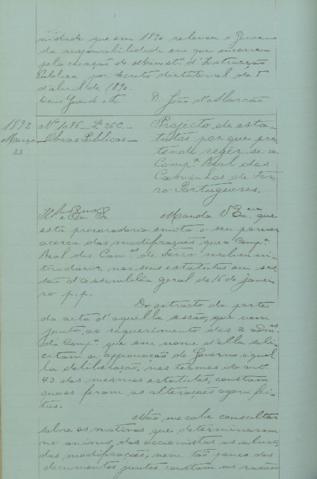 nidade que em 1890 relevou o Governo
da responsabilidade em que incorreu
pela creação do Ministº d'Instrucção
Publica por decreto dictatorial de 5
d'abril de 1890.
Deus Guarde etc D. João d'Alarcão
1892 Nº 1485 Lº 26C Projecto de esta-
Março Obras Publicas tutos por que pre-
23 tende reger-se a
Compª Real dos
Caminhos de fer-
ro Portuguezes.
Manda V Exª que
esta procuradoria emitta o seu parecer
acerca das modificações que a Compª
Real dos Camºs de ferro
nos seus estatutos em ses-
são d'assemblea geral de 16 de janei-
ro p. p.
Do extracto da parte
da acta d'aquella sessão, que vem
junto, ao requerimento dos
da Compª que em nome d'ella soli-
citam a approvação do Governo áquel-
la deliberação, nos termos do artº
43 dos mesmos estatutos, constam
quaes foram as alterações agora fei-
tas.
Não me cabe consultar
sobre os motivos que determinaram
no animo dos accionistas
das modificações, nem tão pouco dos
documentos juntos constam as razões